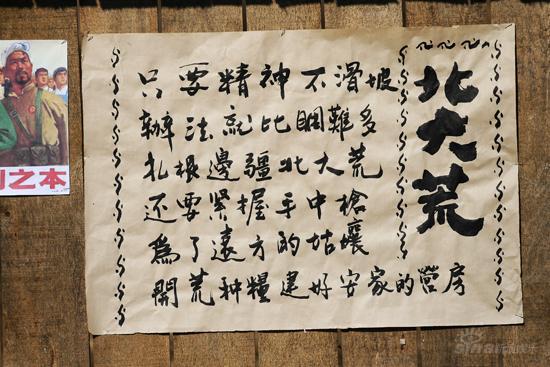 北大荒
只要精神不滑坡
辦法就比睏難多
扎根邊疆北大荒
还要緊握手中槍
為了遠方的姑孃
開荒种糧建好安家的營房
之本
sina新浪娱乐